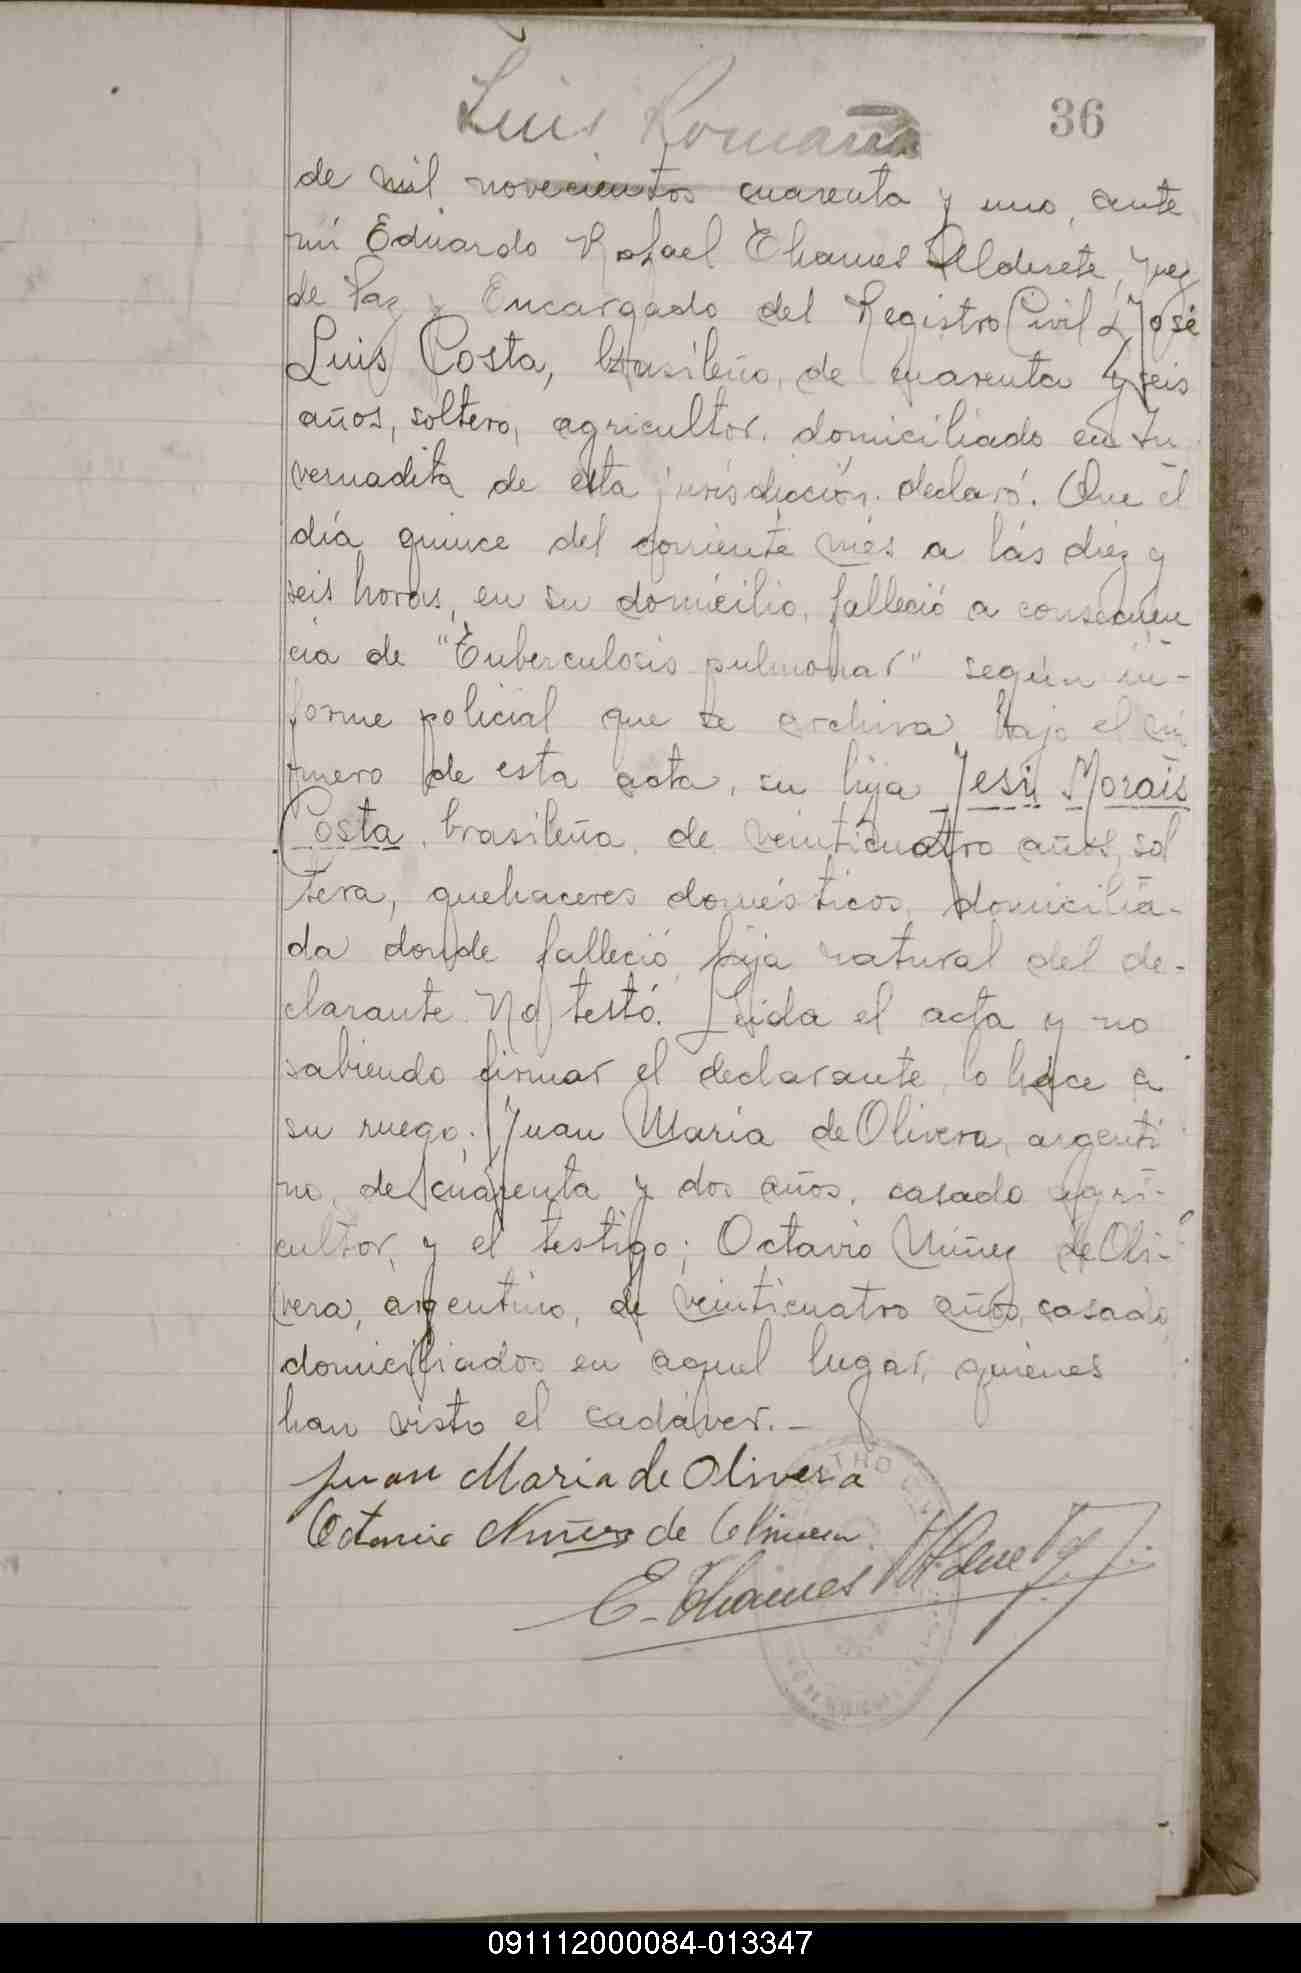 36
Luis Romaña
de mil novecientos cuarenta y uno, ante
mí Eduardo Rafael Thames Alderete, Juez
de Paz y Encargado del Registro Civil, José
Luis Costa, brasileño, de cuarenta y seis
años, soltero, agricultor, domiciliado en In
vernadita de esta jurisdicción, declaró: Que el
día quince del corriente més a lás diéz y
seis horas, en su domicilio, falleció a consecuen
cia de "Tuberculosis pulmonar" según in-
forme policial que se archiva bajo el nú
mero de esta acta, su hija Jesú Morais
Costa, brasileña, de veinticuatro años, sol
tera, quehaceres domésticos, domicilia-
da donde falleció, hija natural del de-
clarante. No testó. Leida el acta y no
sabiendo firmar el declarante, lo hace a
su ruego: Juan María de Olivera, argenti
no, de cuarenta y dos años, casado, agri-
cultor, y el testigo; Octavio Núñez de Oli-
vera, argentino, de veinticuatro años, casado,
domiciliados en aquel lugar, quienes
han visto el cadáver.-
Juan Maria de Olivera
Octavio Nuñez de Olivera
E. Thames Alderete
091112000084-013347